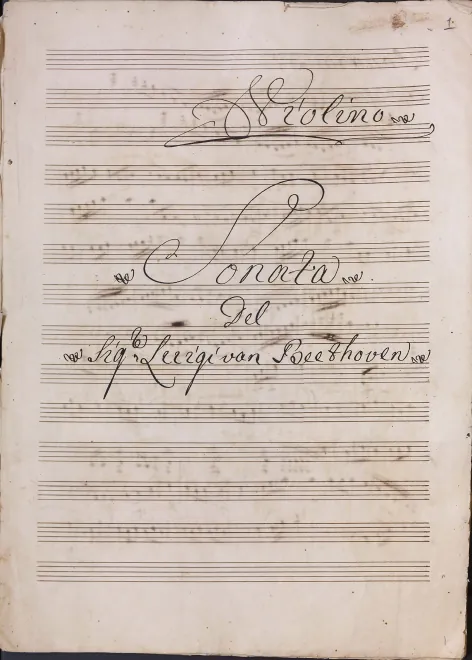 1.
Violino
Sonata
Del
Sig.re Luigi van Beethoven